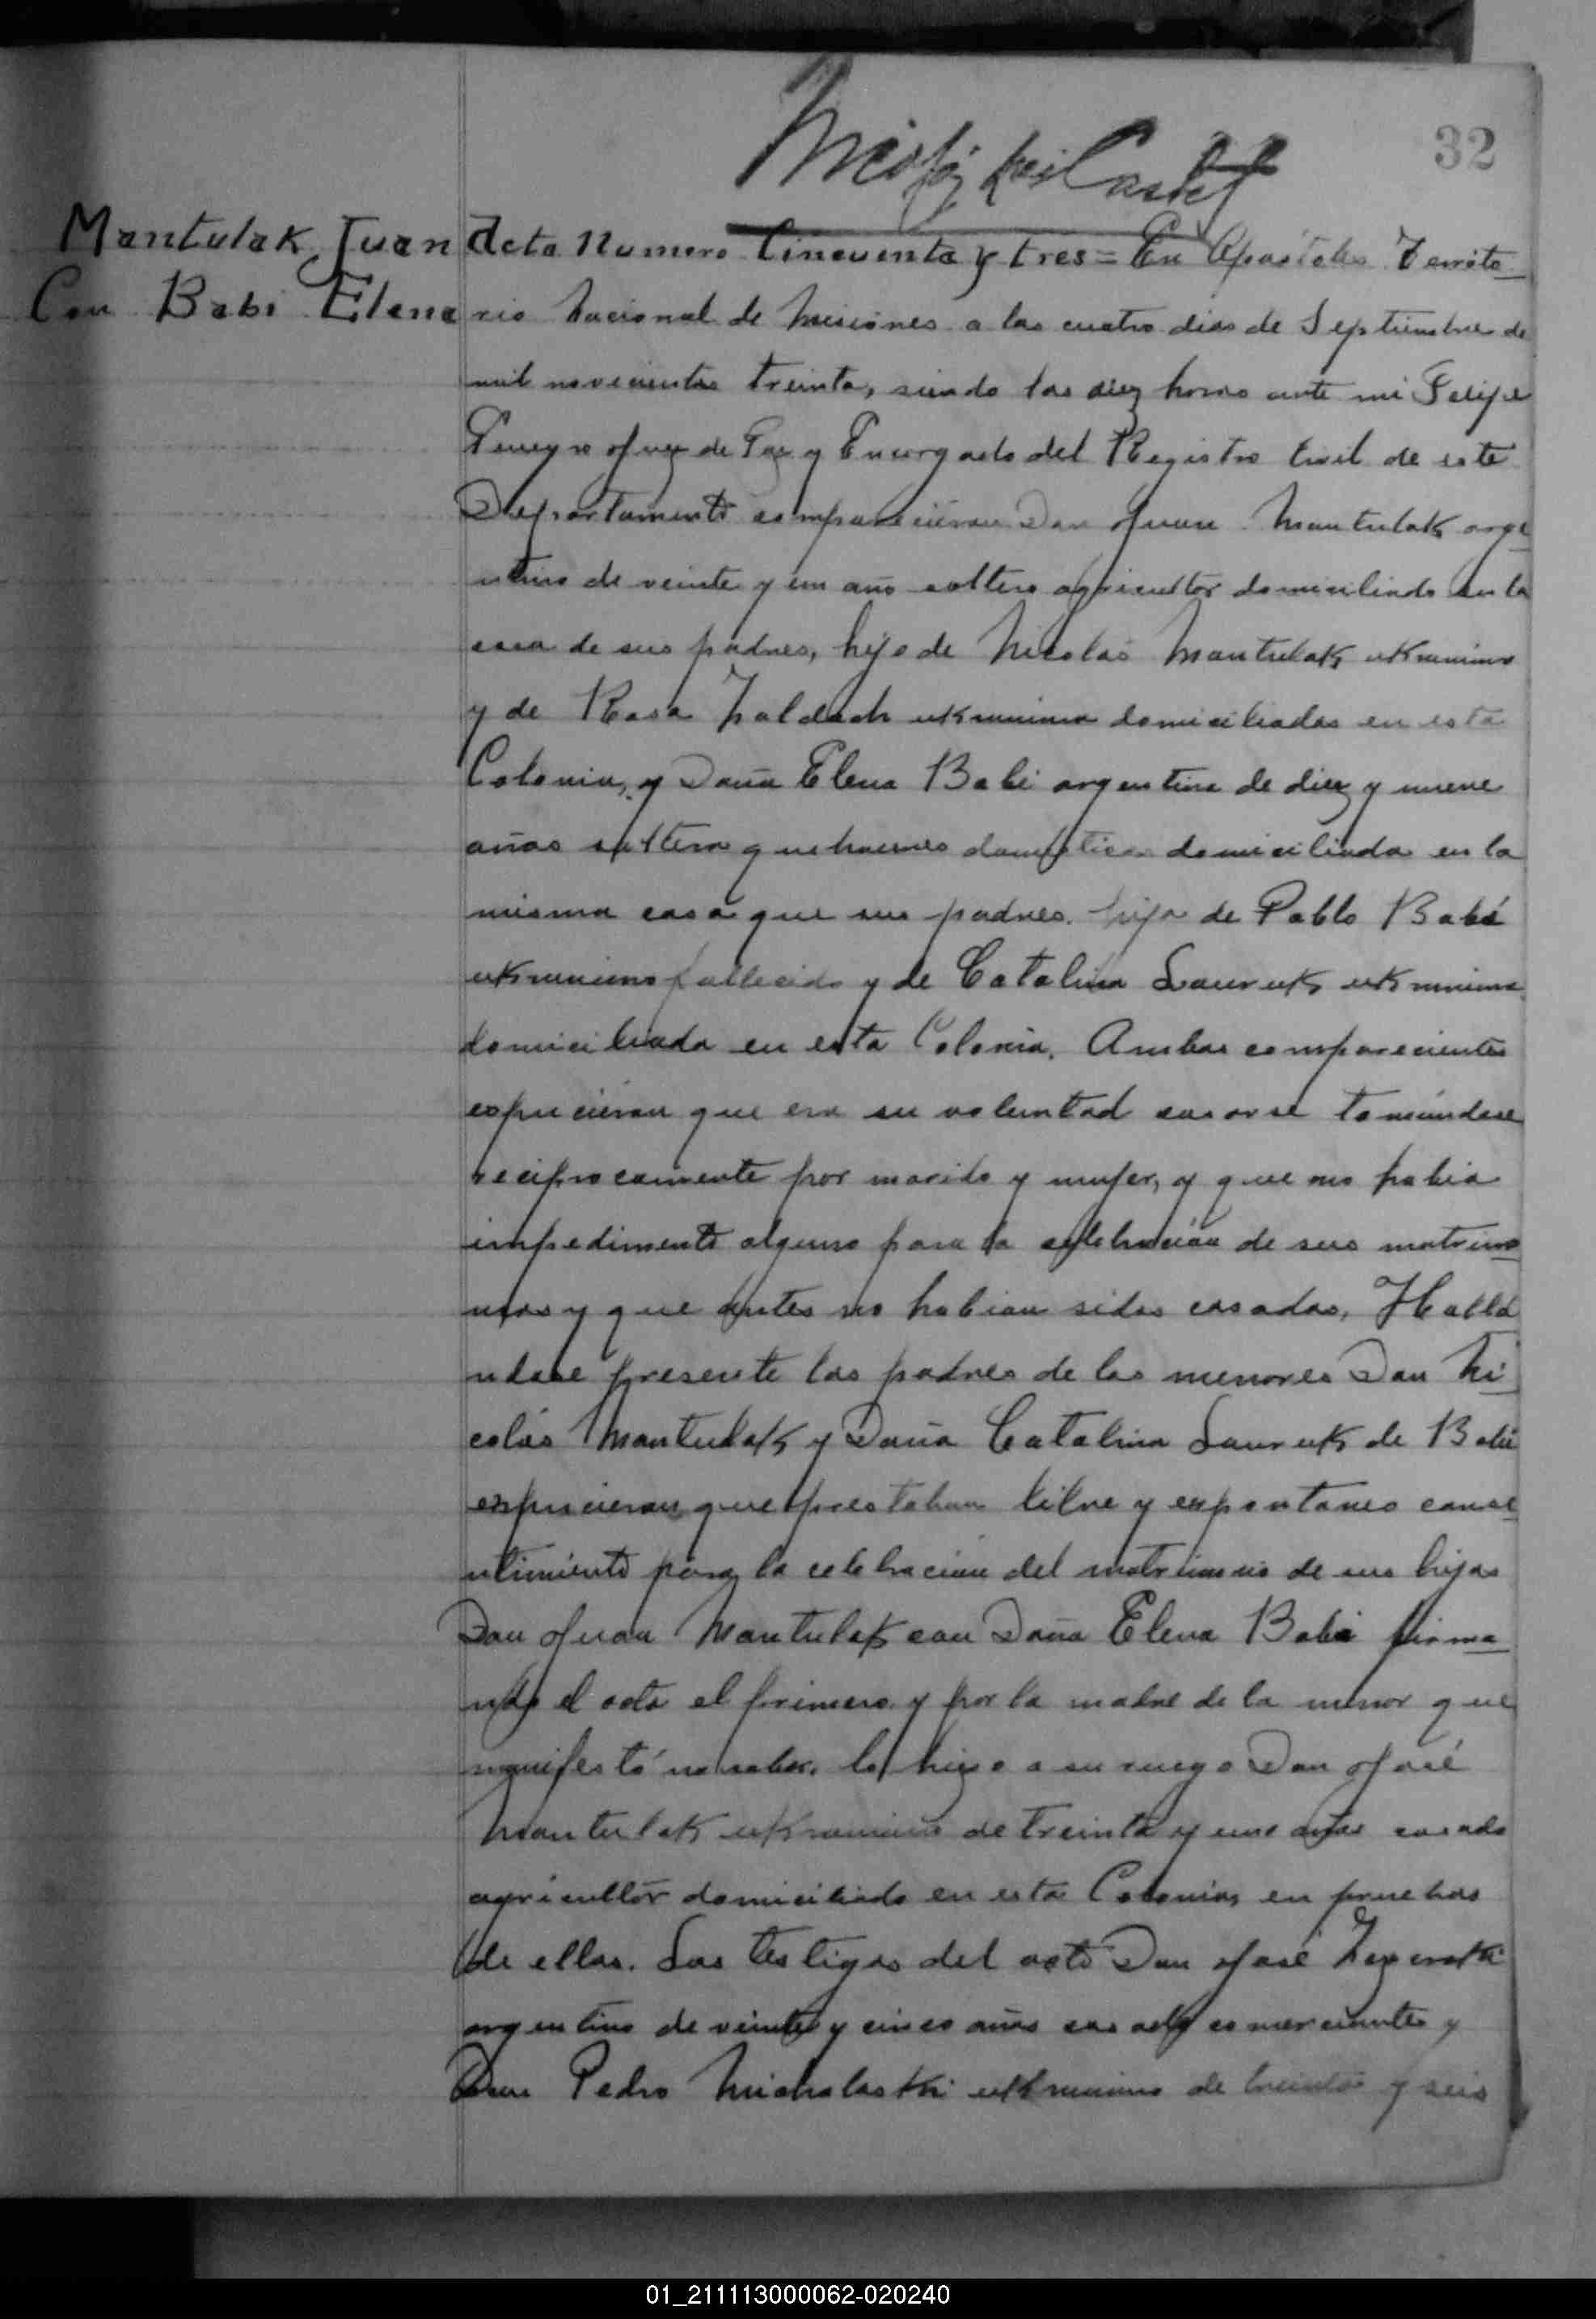 32
Mantulak Juan
Con Babi Elena
Acta Numero Cincuenta y tres = En Apostoles Territo
rio Nacional de Misiones a los cuatro dias de Septiembre de
mil novecientos treinta, siendo las diez horas ante mi Felipe
Juez de Paz y Encargado del Registro Civil de este
Departamento comparecieron Don Juan Mantulak arge
ntino de veinte y un año soltero agricultor domiciliado en la
casa de sus padres, hijo de Nicolás Mantulak ukraniano
y de Rosa ukraniana domiciliados en esta
Colonia, y Doña Elena Babi argentina de diez y nueve
años soltera quehaceres domesticos domiciliada en la
misma casa que sus padres. hija de Pablo Babi
ukraniano fallecido y de Catalina Lauruk ukraniana
domiciliada en esta Colonia. Ambos comparecientes
expucieron que era su voluntad casarse tomándose
reciprocamente por marido y mujer, y que no habia
impedimento alguno para la celebración de sus matrimo
nios y que antes no habian sidos casados. Hallá
ndose presente los padres de los menores Don Ni
colás Mantulak y Doña Catalina Lauruk de Babi
expucieron que prestaban libre y espontaneo conse
ntimiento para la celebracion del matrimonio de sus hijos
Don Juan Mantulak con Doña Elena Babi firma
ndo el acta el primero y por la madre de la menor que
manifestó no saber, lo hizo a su ruego Don José
Mantulak ukraniano de treinta y uno años casado
agricultor domiciliado en esta Colonia, en pruebas
de ellos. Los testigos del acto Don José
argentino de veinte y cinco años casado comerciante y
Don Pedro Michalaski ukraniano de treinta y seis
01_211113000062-020240